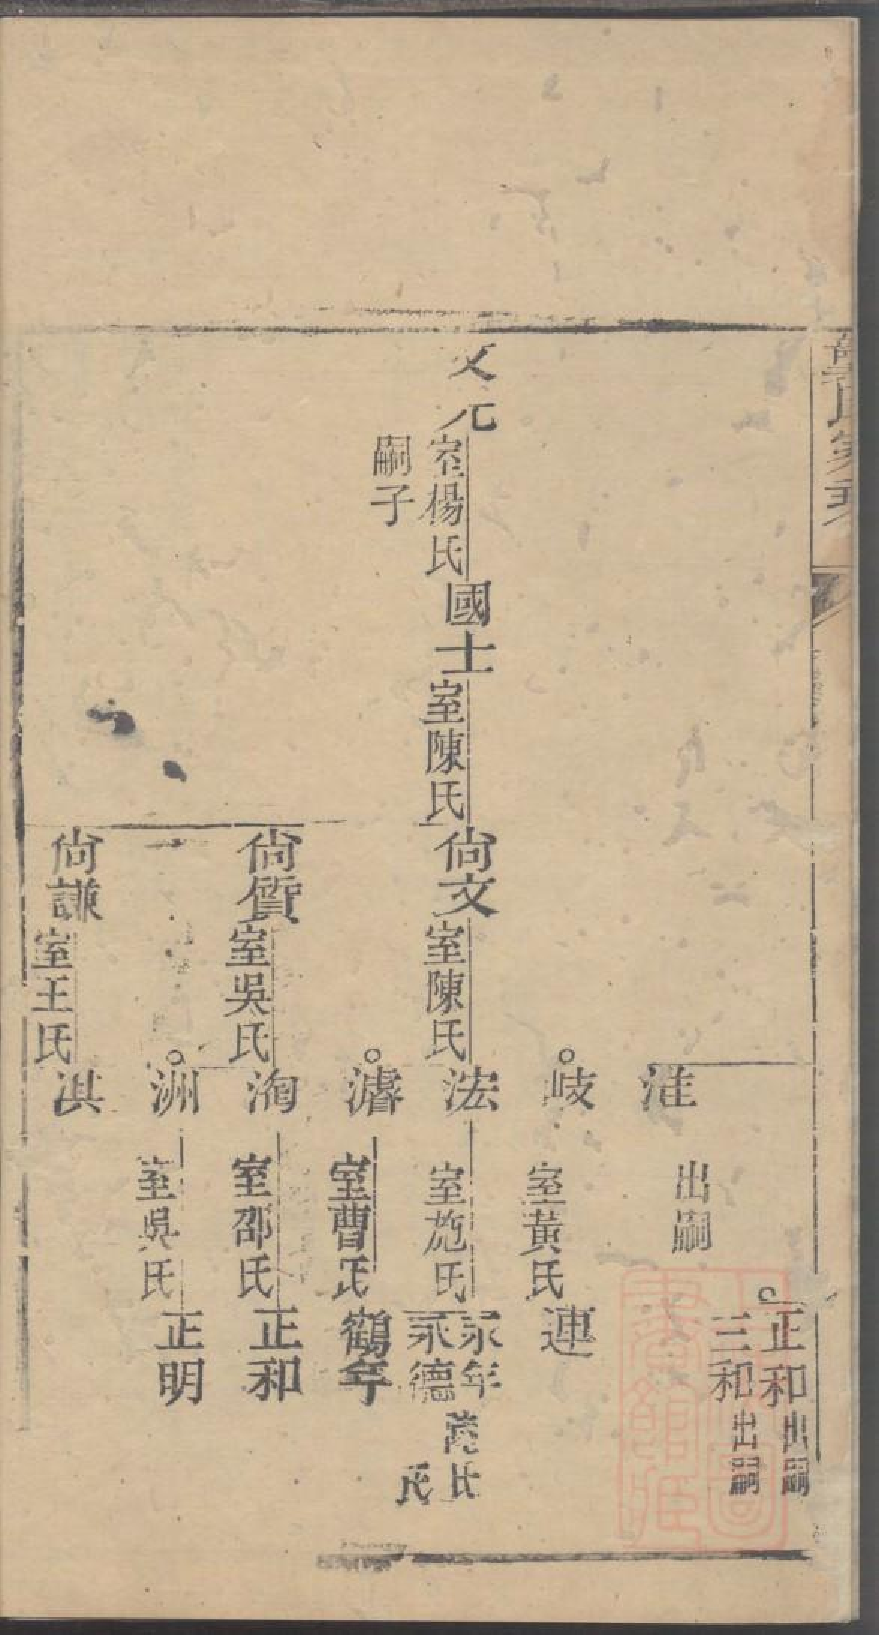 文元
室楊氏
嗣子
國士
室陳氏
尙文
室陳氏
尙質
室吳氏
尙謙
室王氏
淮
出嗣
岐
室黃氏
浤
室施氏
濬
室曹氏
洵
室邵氏
洲
室吳氏
淇
正和
出嗣
三和
出嗣
連
永年
氏
永德
氏
鶴年
正和
正明